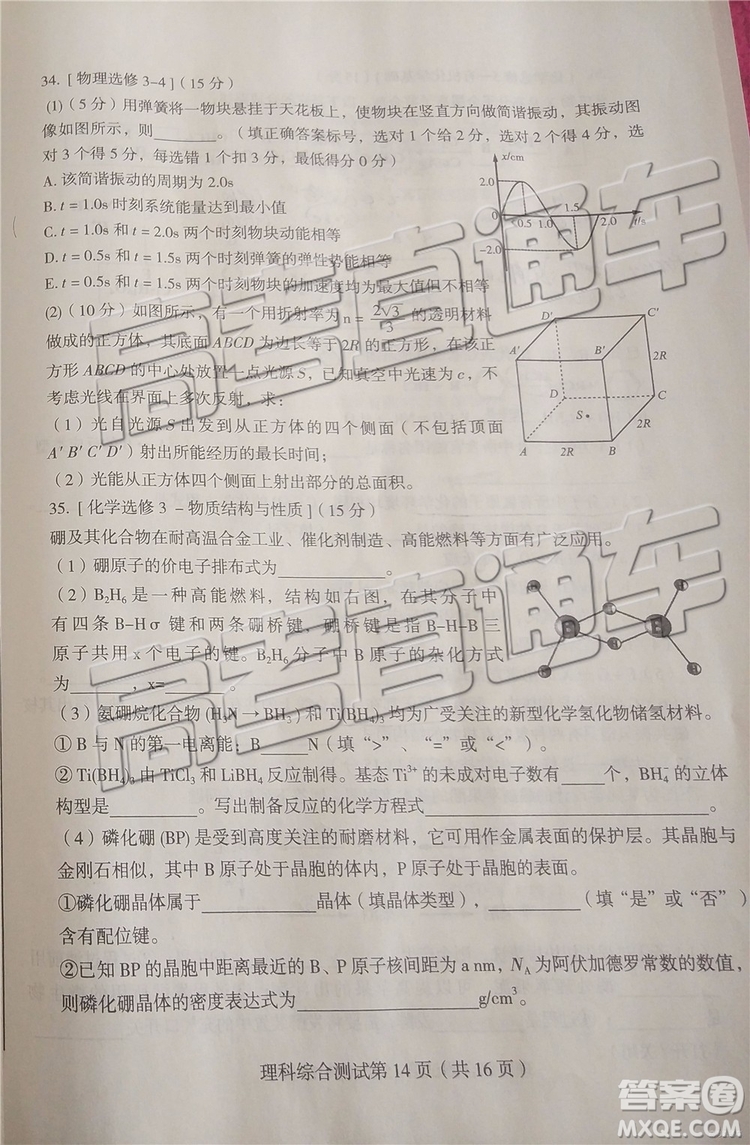 34. [ 物理选修3-4 ] (15分)
(1)(5分)用弹簧将一物块悬挂于天花板上，使物块在竖直方向做简谐振动，其振动图
像如图所示，则________。(填正确答案标号，选对1个给2分，选对2个得4分，选
对3个得5分，每选错1个扣3分，最低得分0分)
A. 该简谐振动的周期为2.0s
B. t = 1.0s 时刻系统能量达到最小值
C. t = 1.0s 和 t = 2.0s 两个时刻物块动能相等
D. t = 0.5s 和 t = 1.5s 两个时刻弹簧的弹性势能相等
E. t = 0.5s 和 t = 1.5s 两个时刻物块的加速度均为最大值但不相等
x/cm
2.0
0
-2.0
0.5 1.0 1.5 2.0 t/s
(2)(10分)如图所示，有一个用折射率为 n = 2√3/3 的透明材料
做成的正方体，其底面ABCD为边长等于2R的正方形，在该正
方形ABCD的中心处放置一点光源S，已知真空中光速为c，不
考虑光线在界面上多次反射，求：
(1)光自光源S出发到从正方体的四个侧面(不包括顶面
A' B' C' D')射出所能经历的最长时间；
(2)光能从正方体四个侧面上射出部分的总面积。
D' C'
A' B' 2R
D C
S
2R
A 2R B
35. [ 化学选修3 - 物质结构与性质 ] (15分)
硼及其化合物在耐高温合金工业、催化剂制造、高能燃料等方面有广泛应用。
(1)硼原子的价电子排布式为__________。
(2)B₂H₆是一种高能燃料，结构如右图，在其分子中
有四条B-Hσ键和两条硼桥键，硼桥键是B-H-B三
原子共用x个电子的键。B₂H₆分子中B原子的杂化方式
为______，x=______。
(3)氨硼烷化合物(H₃N→BH₃)和Ti(BH₄)₃均为广受关注的新型化学氢化物储氢材料。
①B与N的第一电离能：B______N(填">"、"="或"<")。
②Ti(BH₄)₃由TiCl₃和LiBH₄反应制得。基态Ti³⁺的未成对电子数有____个，BH₄⁻的立体
构型是________。写出制备反应的化学方程式__________________________。
(4)磷化硼(BP)是受到高度关注的耐磨材料，它可用作金属表面的保护层。其晶胞与
金刚石相似，其中B原子处于晶胞的体内，P原子处于晶胞表面。
①磷化硼晶体属于__________晶体(填晶体类型)，__________(填"是"或"否")
含有配位键。
②已知BP的晶胞中距离最近的B、P原子核间距为a nm，N_A为阿伏加德罗常数的数值，
则磷化硼晶体的密度表达式为________________g/cm³。
理科综合测试第14页(共16页)
高考直通车
高考直通车
答案圈
MXQE.COM